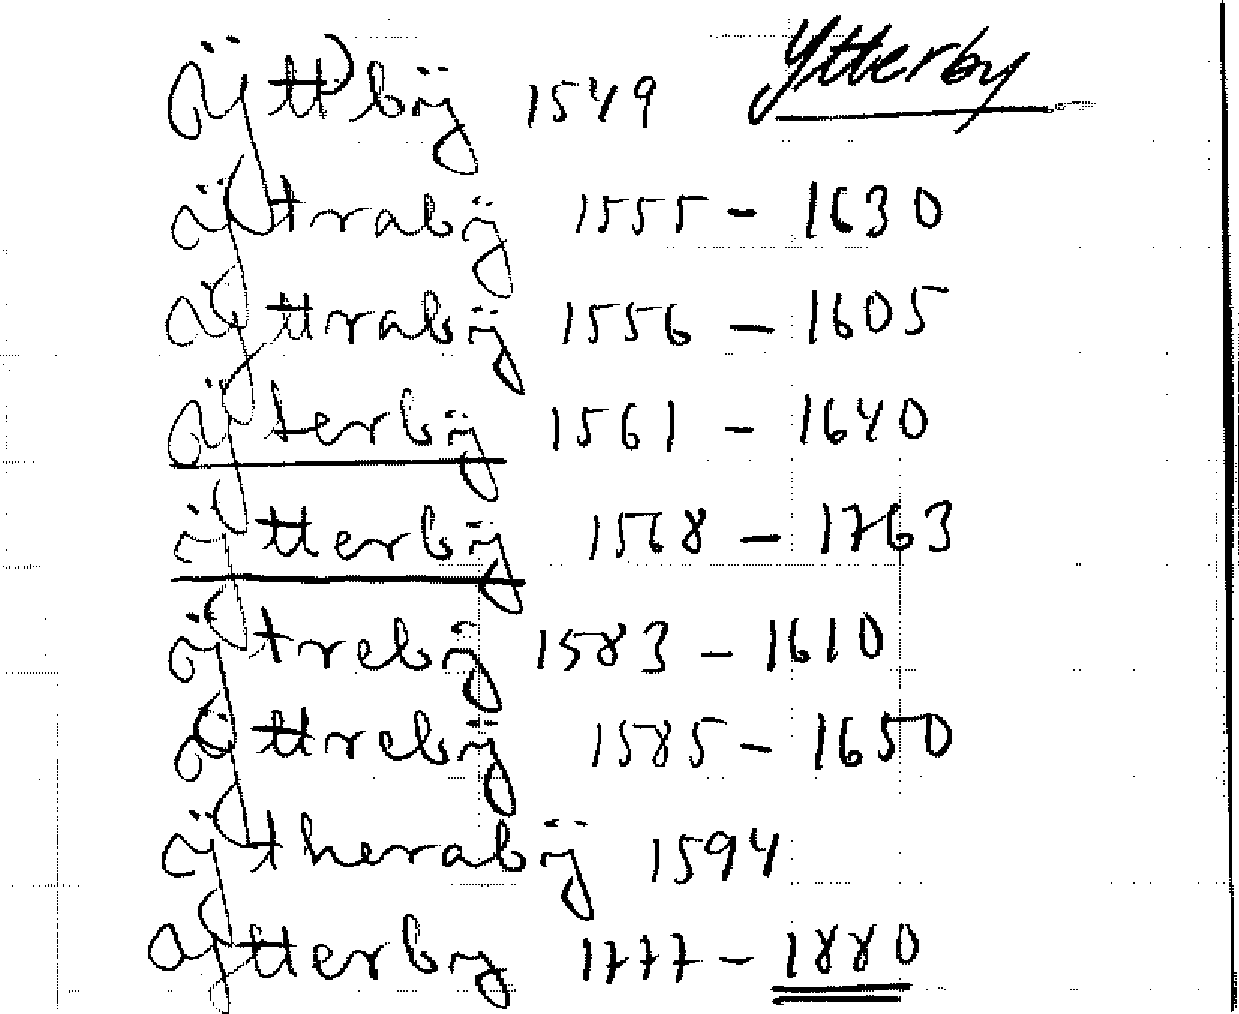 Ÿtt)bÿ 1549 Ytterby
Ÿtrabÿ 1555 – 1630
Ÿttrabÿ 1556 – 1605
Ÿterbÿ 1561 – 1640
Ÿtterbÿ 1568 – 1763
Ÿtrebÿ 1583 – 1610
Ÿttrebÿ 1585 – 1650
Ÿtherabÿ 1594
Ytterby 1777 – 1880